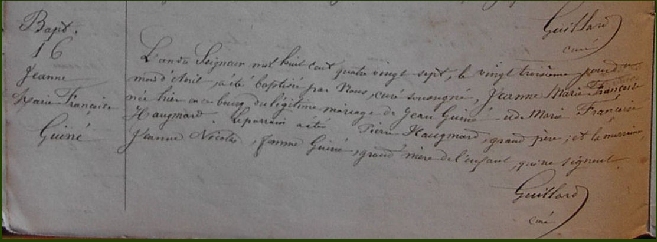 Guillard
curé
Bapt.
16
Jeanne
Marie Française
Guiné
L'an du Seigneur mil huit cent quatre vingt sept, le vingt troisième jour du
mois d'Avril, a été baptisée par Nous, curé soussigné, Jeanne Marie Française
née hier au bourg du légitime mariage de Jean Guiné et de Marie Française
Haugmard. Le parrain a été Pierre Haugmard, grand père, et la marraine
Jeanne Nicolas, femme Guiné, grand mère de l'enfant, qui ne signent.
Guillard
curé